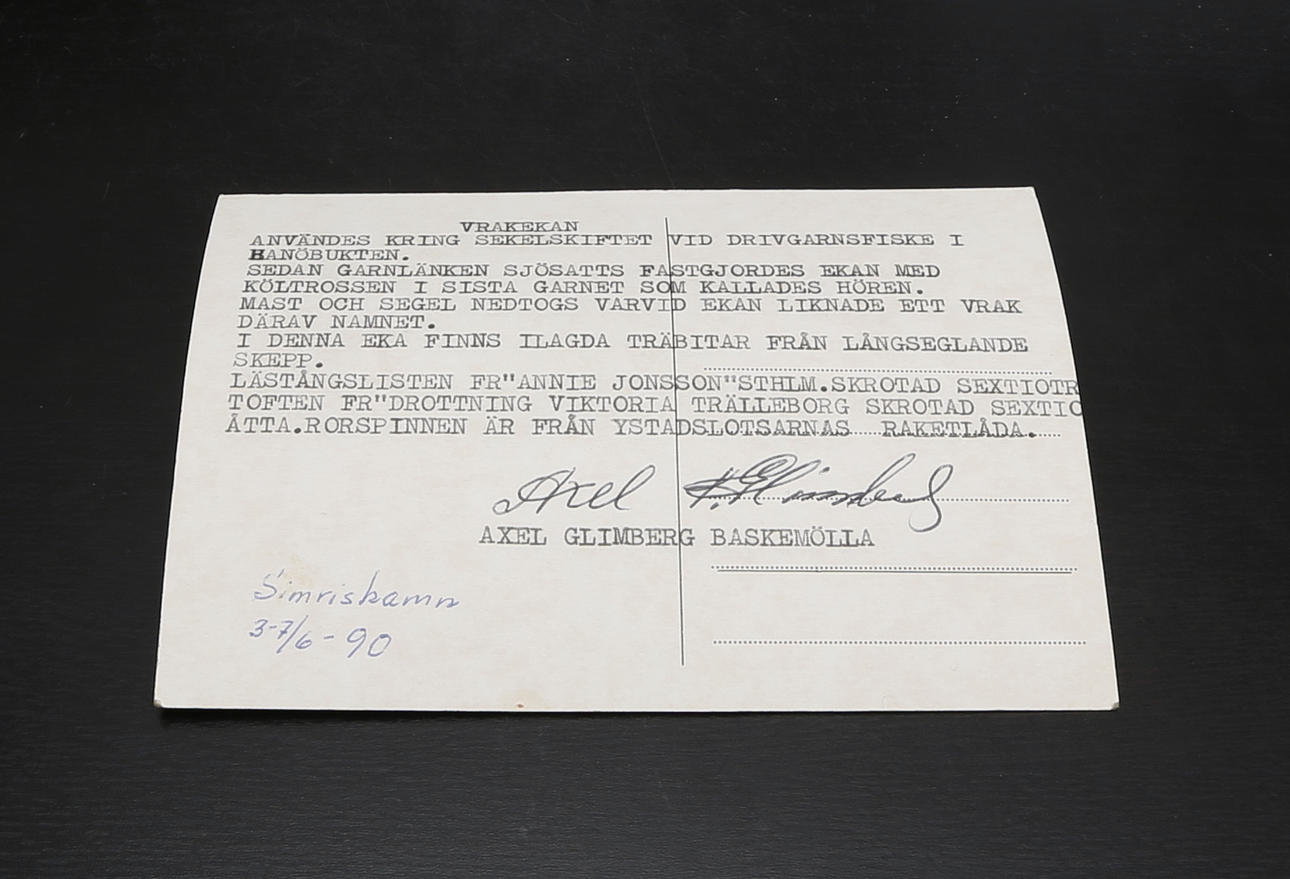 VRAKEKAN
ANVÄNDES KRING SEKELSKIFTET VID DRIVGARNSFISKE I
HANÖBUKTEN.
SEDAN GARNLÄNKEN SJÖSATTS FASTGJORDES EKAN MED
KÖLTROSSEN I SISTA GARNET SOM KALLADES HÖREN.
MAST OCH SEGEL NEDTOGS VARVID EKAN LIKNADE ETT VRAK
DÄRAV NAMNET.
I DENNA EKA FINNS ILAGDA TRÄBITAR FRÅN LÅNGSEGLANDE
SKEPP.
LÄSTÅNGSLISTEN FR"ANNIE JONSSON"STHLM.SKROTAD SEXTIOTR
TOFTEN FR"DROTTNING VIKTORIA TRÄLLEBORG SKROTAD SEXTIO
ÅTTA.RORSPINNEN ÄR FRÅN YSTADSLOTSARNAS RAKETLÅDA.
Axel K. Glimberg
AXEL GLIMBERG BASKEMÖLLA
Simrishamn
3-7/6-90